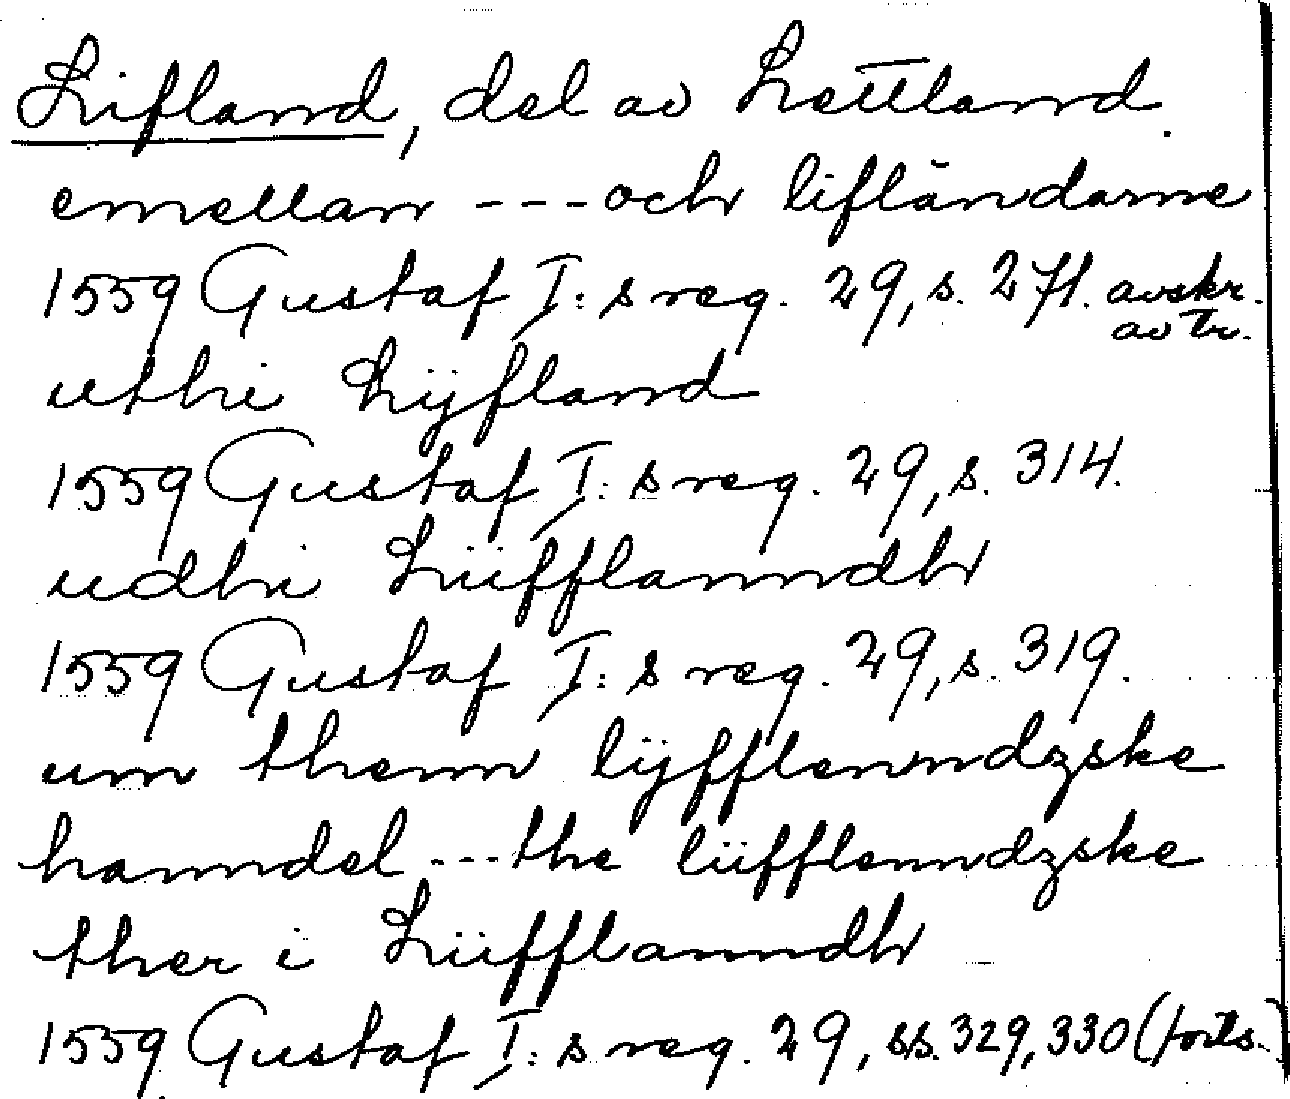 Lifland, del av Lettland.
emellan --- och lifländarne
1559 Gustaf I:s reg. 29, s. 271. avskr. av tr.
uthi Lÿfland
1559 Gustaf I:s reg. 29, s. 314.
udhi Lüfflanndh
1559 Gustaf I:s reg. 29, s. 319.
um thenn lÿfflenndzske
hanndel --- the lüfflenndzske
ther i Lüfflanndh
1559 Gustaf I:s reg. 29, ss. 329, 330 (forts.)